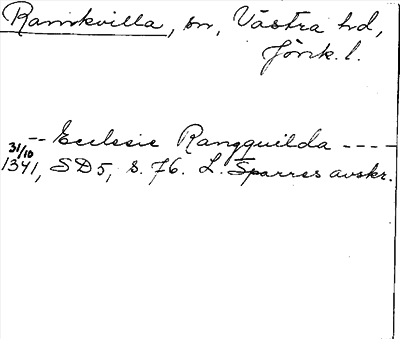 Ramkvilla, sn, Västra hd,
Jönk. l.
-- Ecclesie Rangquilda ----
31/10 1341, SD5, s. 76. L. Sparres avskr.